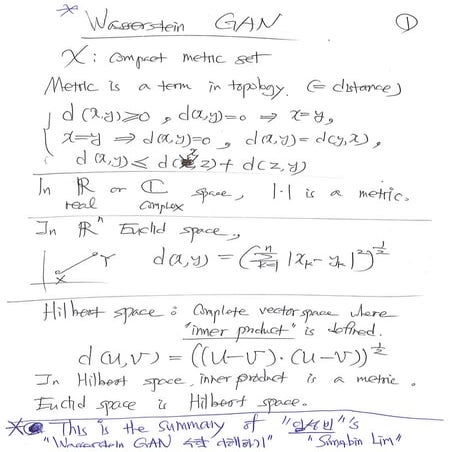 * Wasserstein GAN ①
X : compact metric set
Metric is a term in topology. (= distance)
d(x,y)≥0, d(x,y)=0 ⇒ x=y,
x=y ⇒ d(x,y)=0, d(x,y)=d(y,x),
d(x,y) ≤ d(x,z) + d(z,y)
In ℝ or ℂ space, |·| is a metric.
real complex
In ℝⁿ Euclid space,
x y d(x,y) = (∑_{k=1}^{n} |x_k - y_k|²)^{1/2}
Hilbert space : Complete vector space where
"inner product" is defined.
d(u,v) = ((u-v)·(u-v))^{1/2}
In Hilbert space, inner product is a metric.
Euclid space is Hilbert space.
* This is the summary of "임성빈"'s
"Wasserstein GAN 수학 이해하기" "Sungbin Lim"